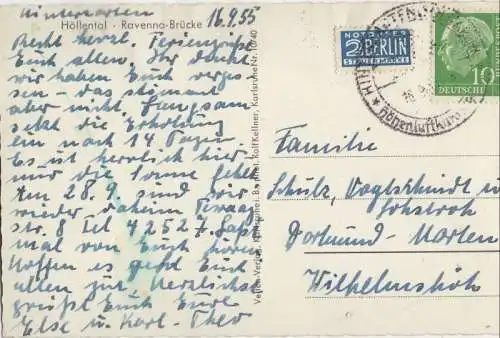 Hinterzarten
Höllental · Ravenna-Brücke 16.9.55
Recht herzl. Feriengrüße
Euch allen. Ihr denkt
wir haben Euch verges-
sen - das stimmt
aber nicht. Langsam
setzt die Erholung
ein nach 14 Tagen.
Es ist herrlich hier
und die Sonne fehlt
Am 28.9. sind wir
wieder daheim
str. 8 Tel 42527. Laßt
mal von Euch hören
Hoffen es geht Euch
allen gut. Herzlichst
grüßt Euch Eure
Else u. Karl-Theo
Rolf Kellner, Karlsruhe Nr. 1040
NOTOPFER
2 BERLIN
STEUERMARKE
DEUTSCHE
10
Höhenluftkurort
Familie
Schulz, Vogtschmidt u
Lohstroh
Dortmund-Marten
Wilhelmshöh